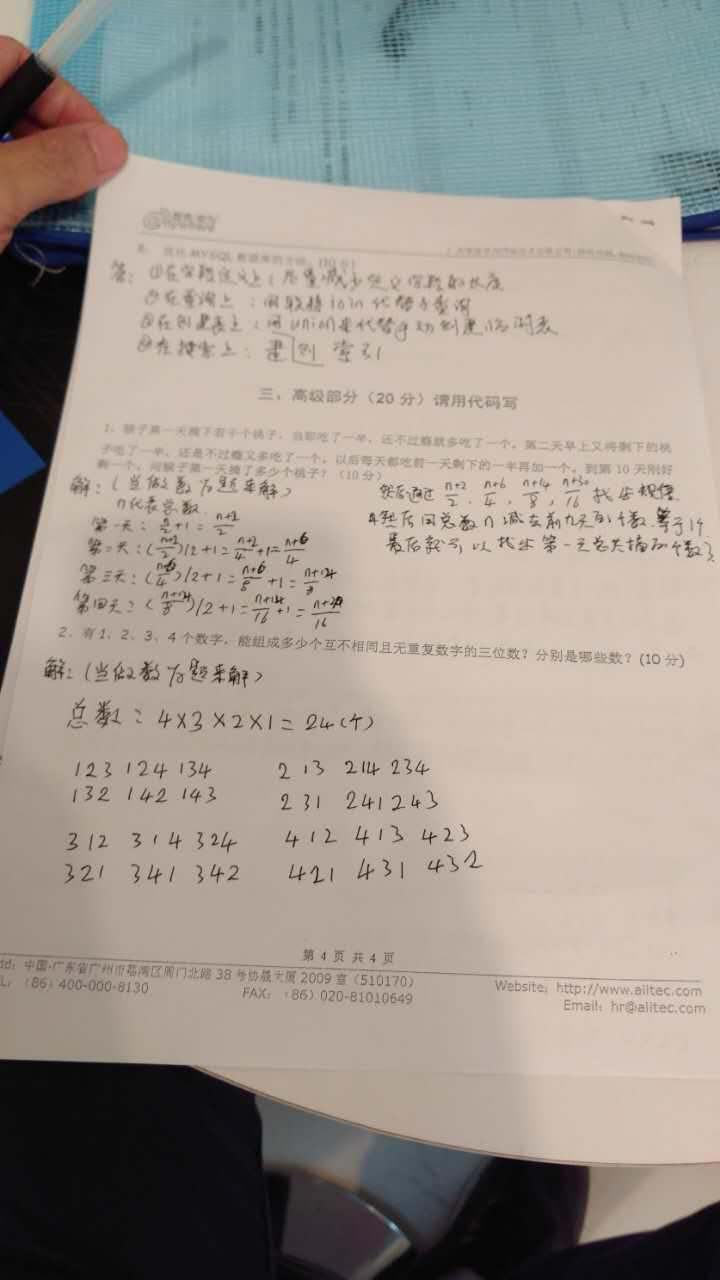 8. 优化 MYSQL 数据库的方法。(10 分)
答: ①在字段定义上: 尽量减少定义字段的长度
②在查询上: 用联接join代替子查询
③在创建表上: 用union来代替手动创建临时表
④在搜索上: 建创 索引
三、高级部分（20 分）请用代码写
1、猴子第一天摘下若干个桃子，当即吃了一半，还不过瘾就多吃了一个。第二天早上又将剩下的桃
子吃了一半，还是不过瘾又多吃了一个。以后每天都吃前一天剩下的一半再加一个。到第 10 天刚好
剩一个。问猴子第一天摘了多少个桃子？（10 分）
解: (当做数学题来解)
n代表总数
第一天: n/2+1 = n+2/2
第二天: (n+2/2)/2+1 = n+2/4+1 = n+6/4
第三天: (n+6/4)/2+1 = n+6/8 +1 = n+14/8
第四天: (n+14/8)/2+1 = n+14/16+1 = n+30/16
然后通过 n+2/2, n+6/4, n+14/8, n+30/16 找出规律
然后用总数n减去前九天的个数 等于1个
最后就可以找出第一天总共摘的个数了
2、有 1、2、3、4 个数字，能组成多少个互不相同且无重复数字的三位数？分别是哪些数？(10 分)
解: (当做数学题来解)
总数: 4×3×2×1=24(个)
123 124 134 213 214 234
132 142 143 231 241 243
312 314 324 412 413 423
321 341 342 421 431 432
第 4 页 共 4 页
dd: 中国·广东省广州市荔湾区周门北路 38 号协晟大厦 2009 室（510170）
EL: (86) 400-000-8130 FAX: (86) 020-81010649
Website: http://www.alitec.com
Email: hr@alitec.com